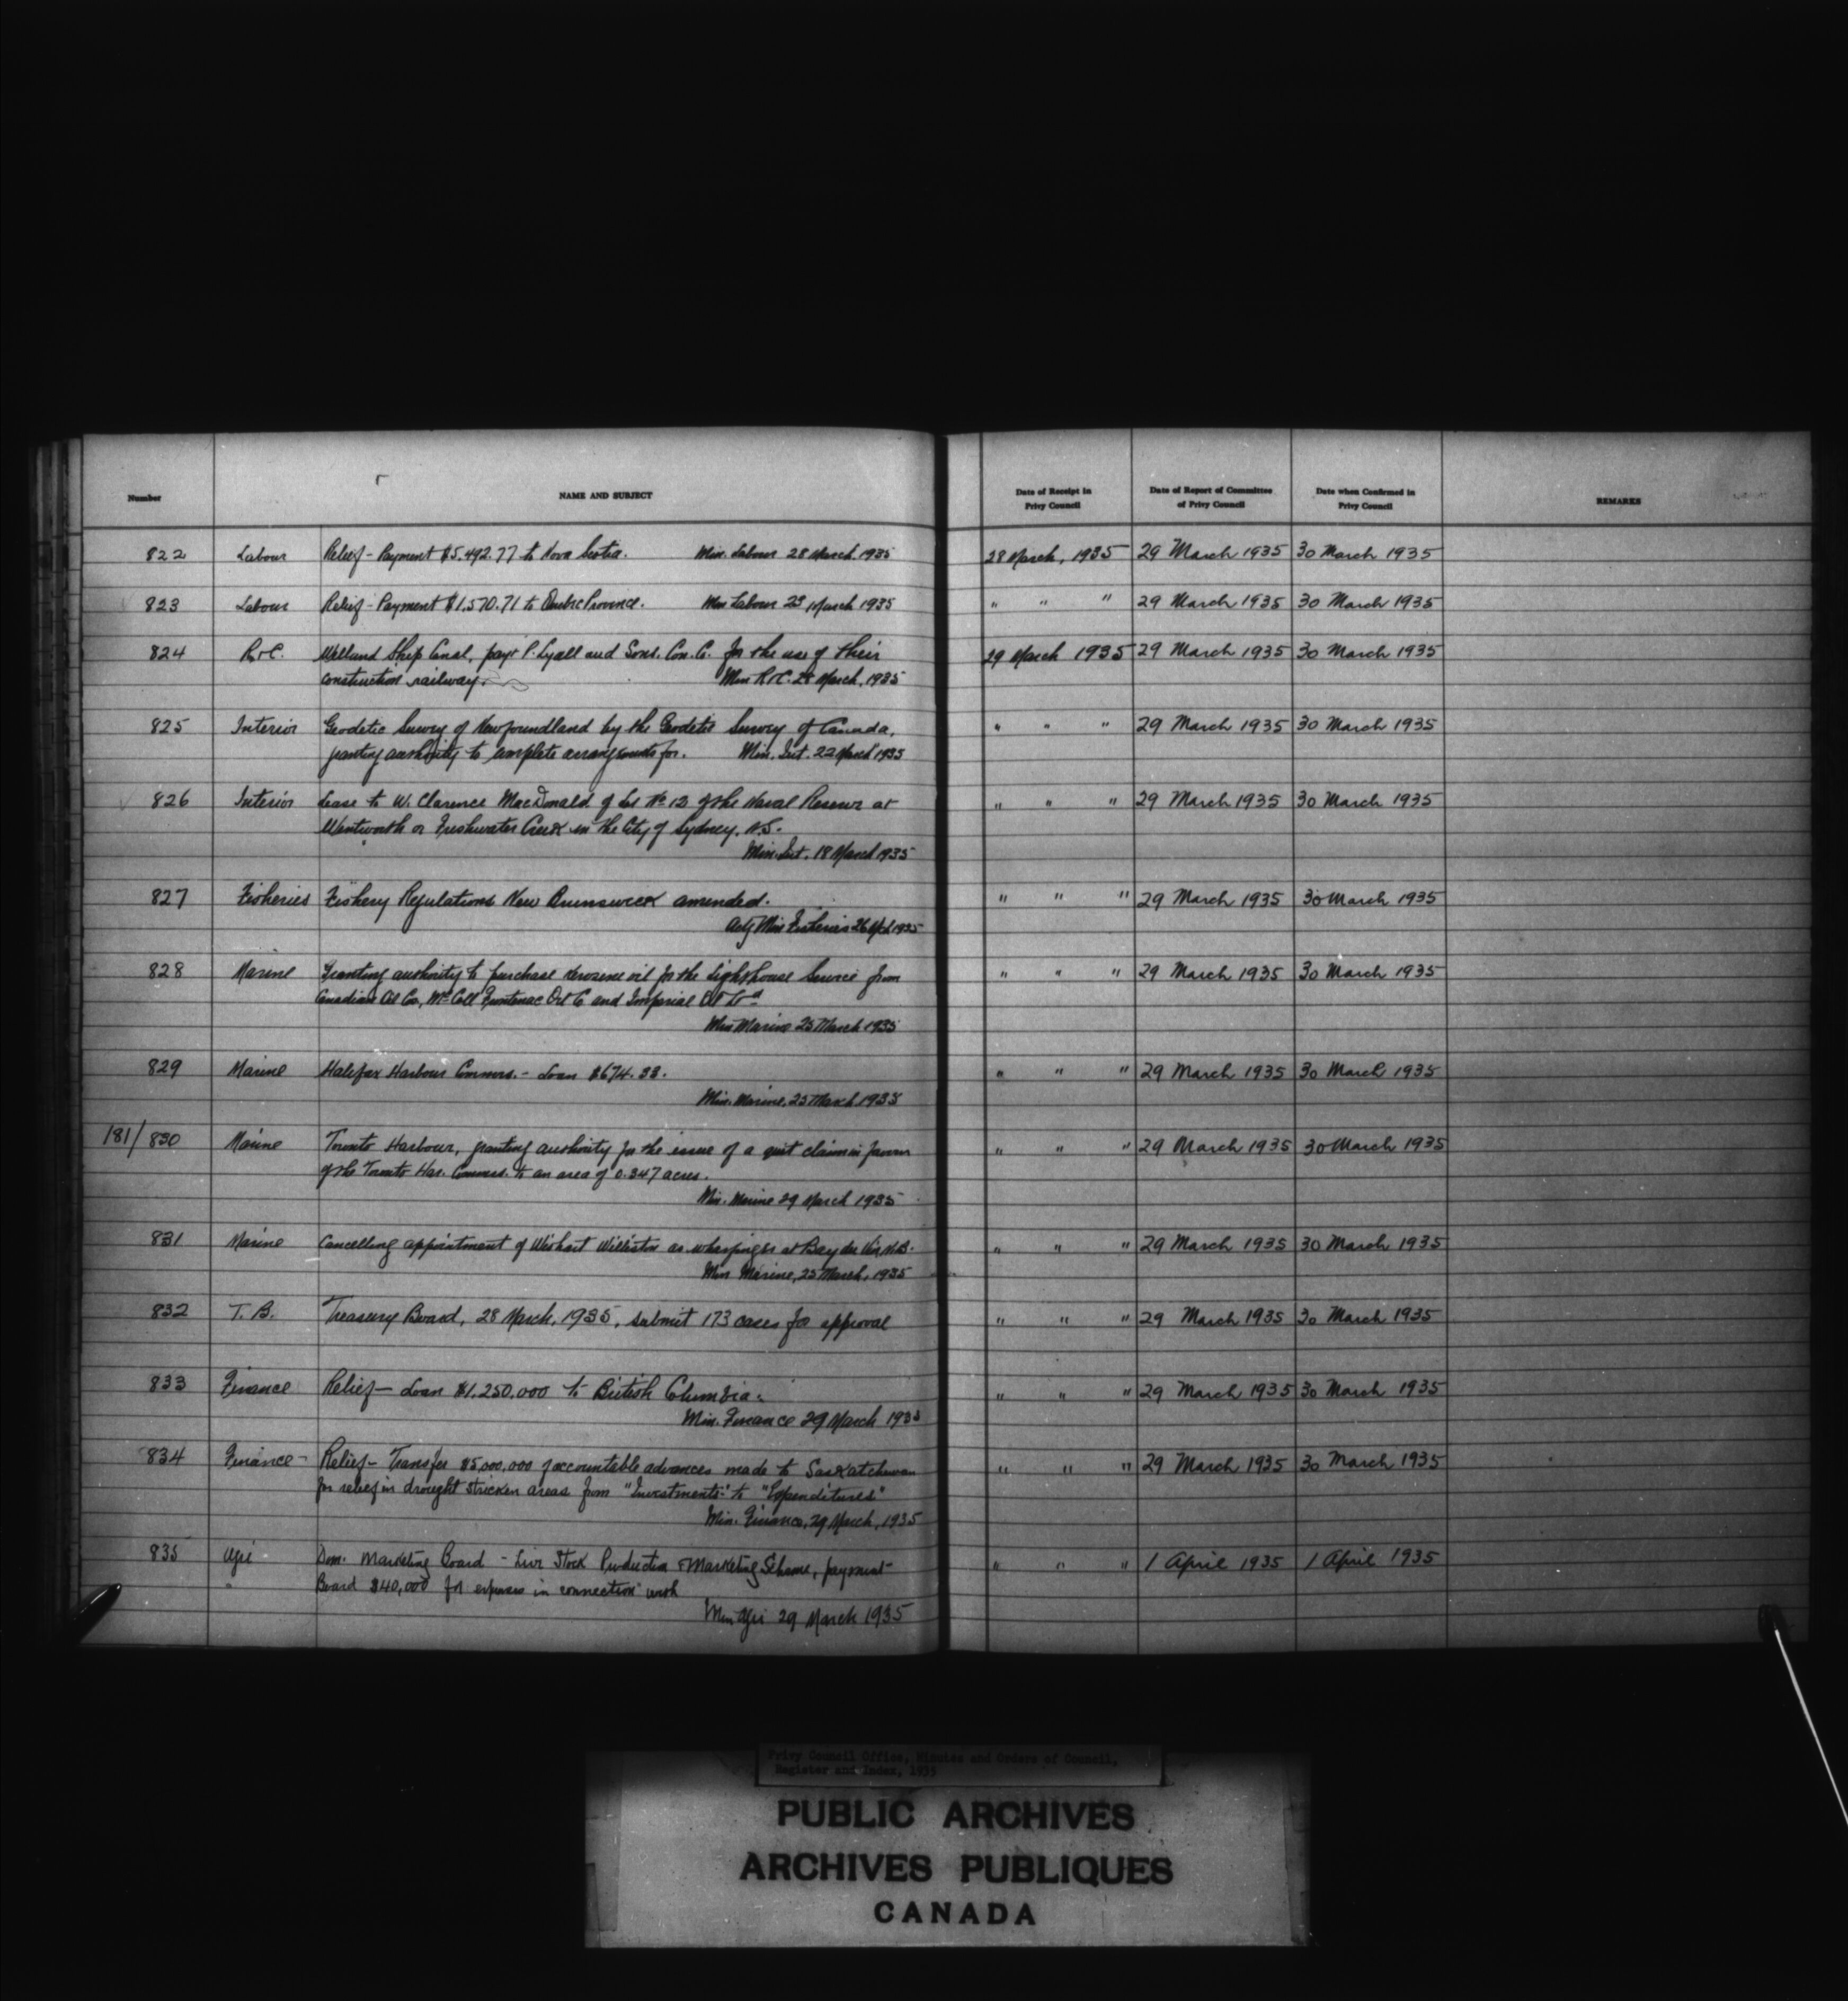 Number NAME AND SUBJECT Date of Receipt in Privy Council Date of Report of Committee of Privy Council Date when Confirmed in Privy Council REMARKS
822 Labour Relief - Payment $5,492.77 to Nova Scotia. Min. Labour 28 March. 1935 28 March, 1935 29 March 1935 30 March 1935
823 Labour Relief - Payment $1,570.71 to Quebec Province. Min Labour 28 March 1935 " " " 29 March 1935 30 March 1935
824 R&C. Welland Ship Canal, payt P. Lyall and Sons. Con. Co. for the use of their 29 March 1935 29 March 1935 30 March 1935
construction railway. Min R&C. 28 March, 1935
825 Interior Geodetic Survey of Newfoundland by the Geodetic Survey of Canada, " " " 29 March 1935 30 March 1935
granting authority to complete arrangements for. Min. Int. 22 March 1935
826 Interior Lease to W. Clarence MacDonald of Lot No 13 of the Naval Reserve at " " " 29 March 1935 30 March 1935
Wentworth or Freshwater Creek in the City of Sydney, N.S.
Min. Int. 18 March 1935
827 Fisheries Fishery Regulations New Brunswick amended. " " " 29 March 1935 30 March 1935
Actg Min Fisheries 26 1935
828 Marine Granting authority to purchase kerosene oil for the Lighthouse Service from " " " 29 March 1935 30 March 1935
Canadian Oil Co, McColl Frontenac Oil Co and Imperial Oil Ltd
Min Marine 25 March 1935
829 Marine Halifax Harbour Commrs. - Loan $674.33. " " " 29 March 1935 30 March 1935
Min. Marine, 25 March 1935
181/ 830 Marine Toronto Harbour, granting authority for the issue of a quit claim in favour " " " 29 March 1935 30 March 1935
of the Toronto Har. Commrs. to an area of 0.347 acres.
Min. Marine 29 March 1935
831 Marine Cancelling appointment of Wishart Williston as wharfinger at Bay du Vin N.B. " " " 29 March 1935 30 March 1935
Min Marine, 25 March, 1935
832 T. B. Treasury Board, 28 March, 1935, submit 173 cases for approval " " " 29 March 1935 30 March 1935
833 Finance Relief - Loan $1,250,000 to British Columbia. " " " 29 March 1935 30 March 1935
Min. Finance 29 March 1935
834 Finance - Relief - Transfer $5,000,000 of accountable advances made to Saskatchewan " " " 29 March 1935 30 March 1935
for relief in drought stricken areas from "Investments" to "Expenditures"
Min. Finance, 29 March, 1935
835 Agri Dom. Marketing Board - Live Stock Production & Marketing Scheme, payment " " " 1 April 1935 1 April 1935
" Board $40,000 for expenses in connection with
Min Agri 29 March 1935
Privy Council Office, Minutes and Orders of Council,
Register and Index, 1935
PUBLIC ARCHIVES
ARCHIVES PUBLIQUES
CANADA